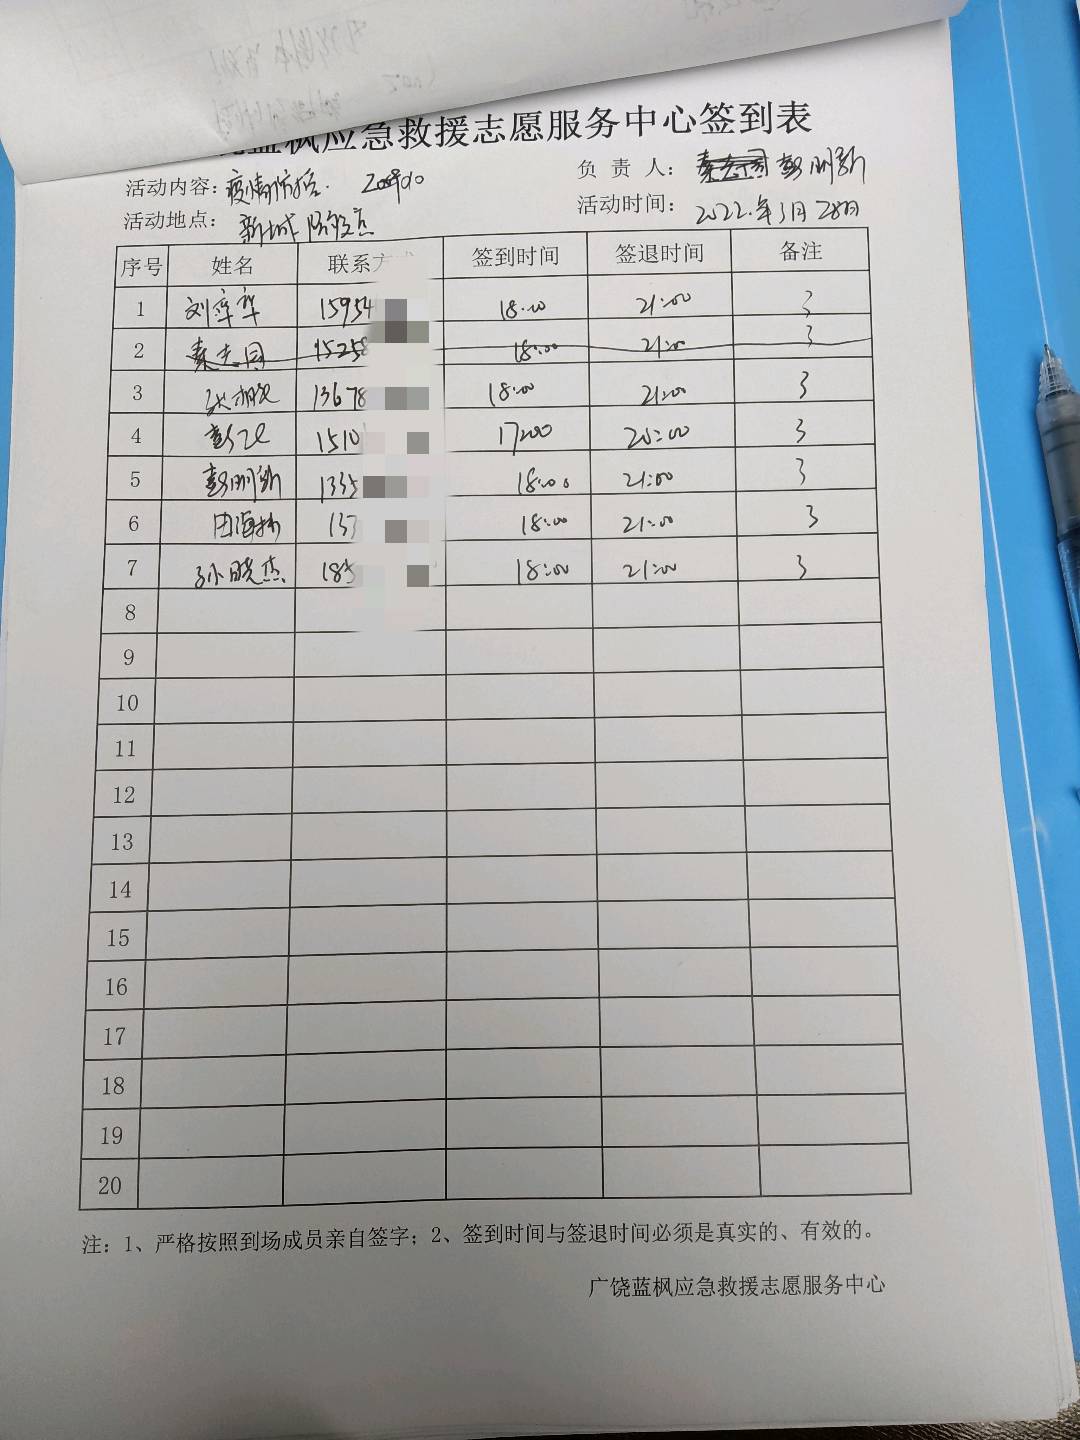 蓝枫应急救援志愿服务中心签到表
活动内容：疫情防控. 负 责 人：彭明新
活动地点：新城 活动时间：2022.年3月28日
序号 姓名 联系方式 签到时间 签退时间 备注
1 15954 18:00 21:00 3
2 秦志国 15258 18:00 21:00 3
3 13678 18:00 21:00 3
4 1510 17:00 20:00 3
5 彭明新 1335 18:00 21:00 3
6 137 18:00 21:00 3
7 孙晓杰 185 18:00 21:00 3
8
9
10
11
12
13
14
15
16
17
18
19
20
注：1、严格按照到场成员亲自签字；2、签到时间与签退时间必须是真实的、有效的。
广饶蓝枫应急救援志愿服务中心